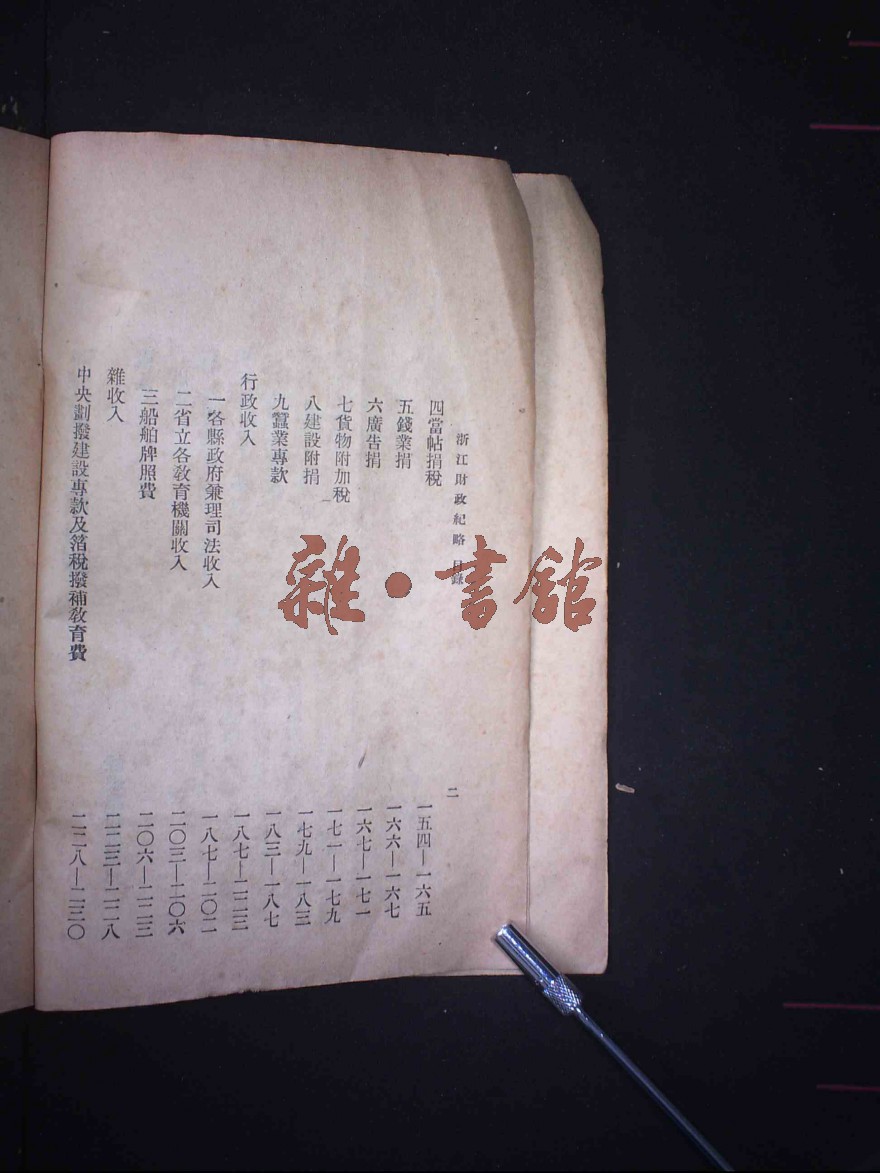 浙江財政紀略 目錄 二
四當帖捐稅 一五四—一六五
五錢業捐 一六六—一六七
六廣告捐 一六七—一七一
七貨物附加稅 一七一—一七九
八建設附捐 一七九—一八三
九蠶業專款 一八三—一八七
行政收入 一八七—二二三
一各縣政府兼理司法收入 一八七—二〇二
二省立各教育機關收入 二〇三—二〇六
三船舶牌照費 二〇六—二二三
雜收入 二二三—二二八
中央劃撥建設專款及箔稅撥補教育費 二二八—二三〇
雜·書館